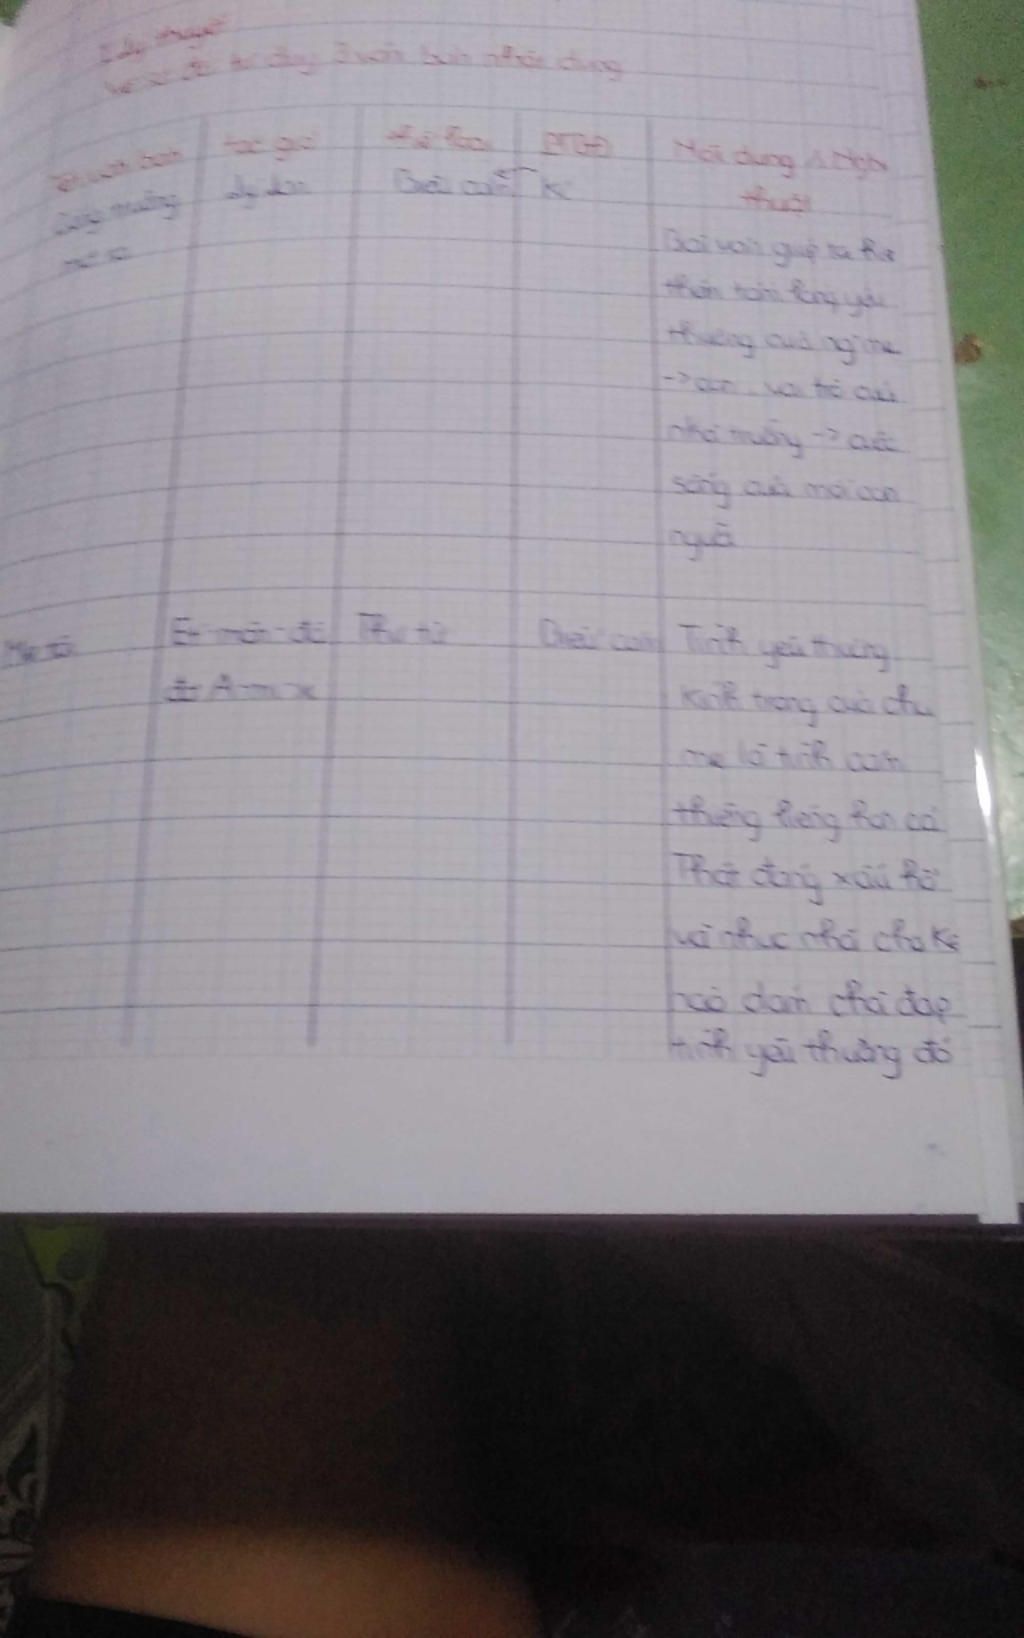 Lý thuyết
Vẽ sơ đồ tư duy 3 văn bản nhật dụng
Tên văn bản tác giả thể loại PTBĐ Nội dung & Nghệ
thuật
Cổng trường Lý Lan Biểu cảm Kí
mở ra
Bài văn giúp ta hiểu
thêm tấm lòng yêu
thương của ng mẹ
-> con và vai trò của
nhà trường -> cuộc
sống của mỗi con
người
Mẹ tôi Ét-môn-đô Thư từ Biểu cảm Tình yêu thương
đơ A-mi-xi kính trọng của cha
mẹ là tình cảm
thiêng liêng hơn cả
Thật đáng xấu hổ
và nhục nhã cho kẻ
nào dám chà đạp
tình yêu thương đó